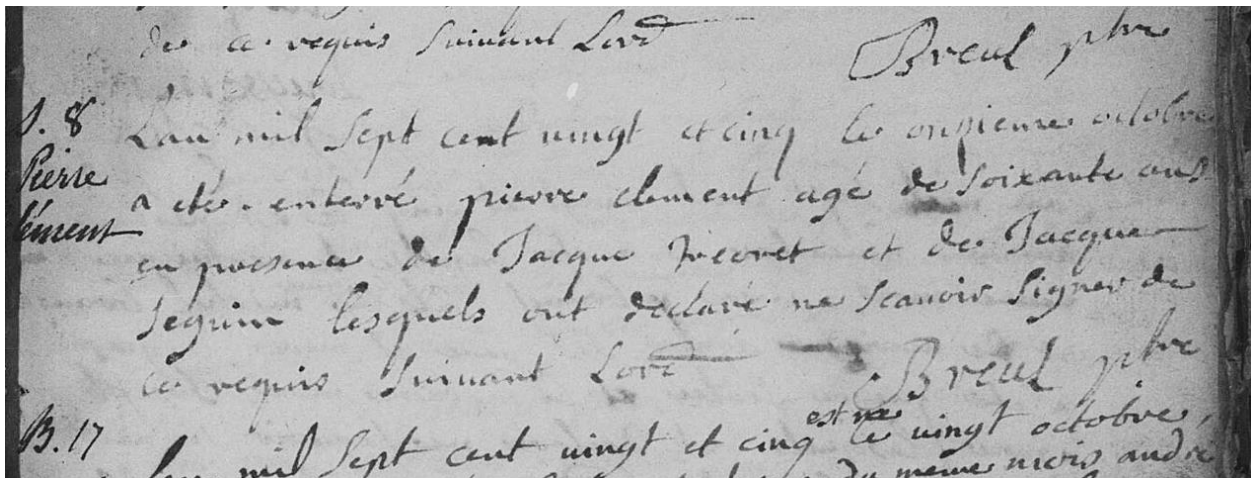 de ce requis suivant Lord
Breul ptre
S. 8
Pierre
lément
Lan mil sept cent vingt et cinq le onsieme octobre
a eté enterré pierre clement agé de soixante ans
en presence de Jacque et de Jacque
seguin lesquels ont declaré ne scavoir signer de
ce requis suivant Lord
Breul ptre
B. 17
Lan mil sept cent vingt et cinq est né le vingt octobre,
du meme mois andré